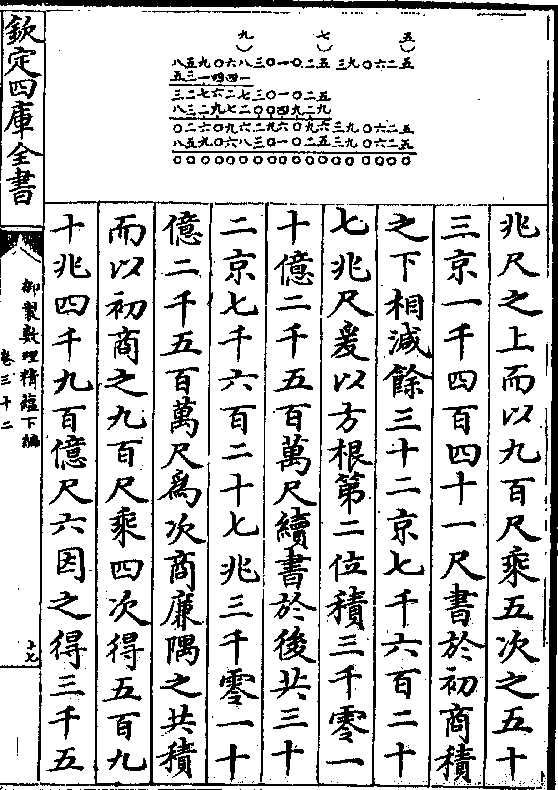 九) 七) 五)
八五九〇六八三〇一〇二五三九〇六二五
五三一四四一
三二七六二七三〇一〇二五
八三二九七二〇〇四九二九
〇二六〇九六二九六〇九六三九〇六二五
八五九〇六八三〇一〇二五三九〇六二五
〇〇〇〇〇〇〇〇〇〇〇〇〇〇〇〇〇〇
兆尺之上而以九百尺乘五次之五十
三京一千四百四十一尺書於初商積
之下相減餘三十二京七千六百二十
七兆尺爰以方根第二位積三千零一
十億二千五百萬尺續書於後共三十
二京七千六百二十七兆三千零一十
億二千五百萬尺爲次商廉隅之共積
而以初商之九百尺乘四次得五百九
十兆四千九百億尺六因之得三千五
欽定四庫全書
御製數理精蘊下編
卷三十二
十七